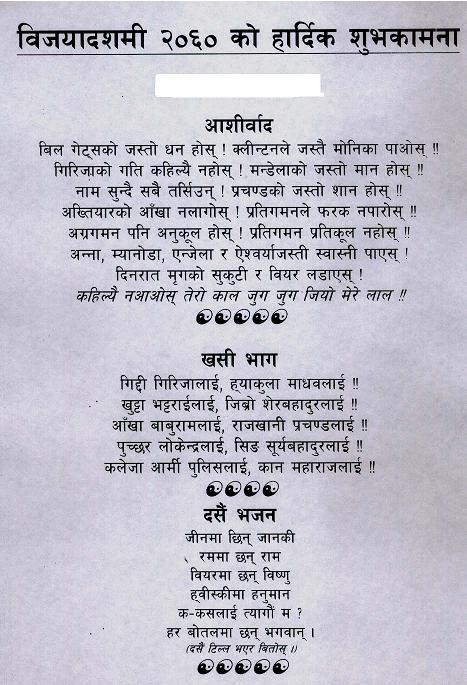 विजयादशमी २०६० को हार्दिक शुभकामना
आशीर्वाद
बिल गेट्सको जस्तो धन होस् ! क्लीन्टनले जस्तै मोनिका पाओस् !!
गिरिजाको गति कहिल्यै नहोस् ! मन्डेलाको जस्तो मान होस् !!
नाम सुन्दै सबै तर्सिउन् ! प्रचण्डको जस्तो शान होस् !!
अख्तियारको आँखा नलागोस् ! प्रतिगमनले फरक नपारोस् !
अग्रगमन पनि अनुकूल होस् ! प्रतिगमन प्रतिकूल नहोस् !
अन्ना, म्यानोडा, एन्जेला र ऐश्वर्याजस्ती स्वास्नी पाएस् !
दिनरात मृगको सुकुटी र वियर लडाएस् !
कहिल्यै नआओस् तेरो काल जुग जुग जियो मेरे लाल !!
खसी भाग
गिद्दी गिरिजालाई, ह्याकुला माधवलाई !!
खुट्टा भट्टराईलाई, जिब्रो शेरबहादुरलाई !!
आँखा बाबुरामलाई, राजखानी प्रचण्डलाई !!
पुच्छर लोकेन्द्रलाई, सिङ सूर्यबहादुरलाई !
कलेजा आर्मी पुलिसलाई, कान महाराजलाई !!
दसैं भजन
जीनमा छिन् जानकी
रममा छन् राम
वियरमा छन् विष्णु
ह्वीस्कीमा हनुमान
क-कसलाई त्यागौं म ?
हर बोतलमा छन् भगवान् ।
(दसैं टिल्ल भएर बितोस् ।)